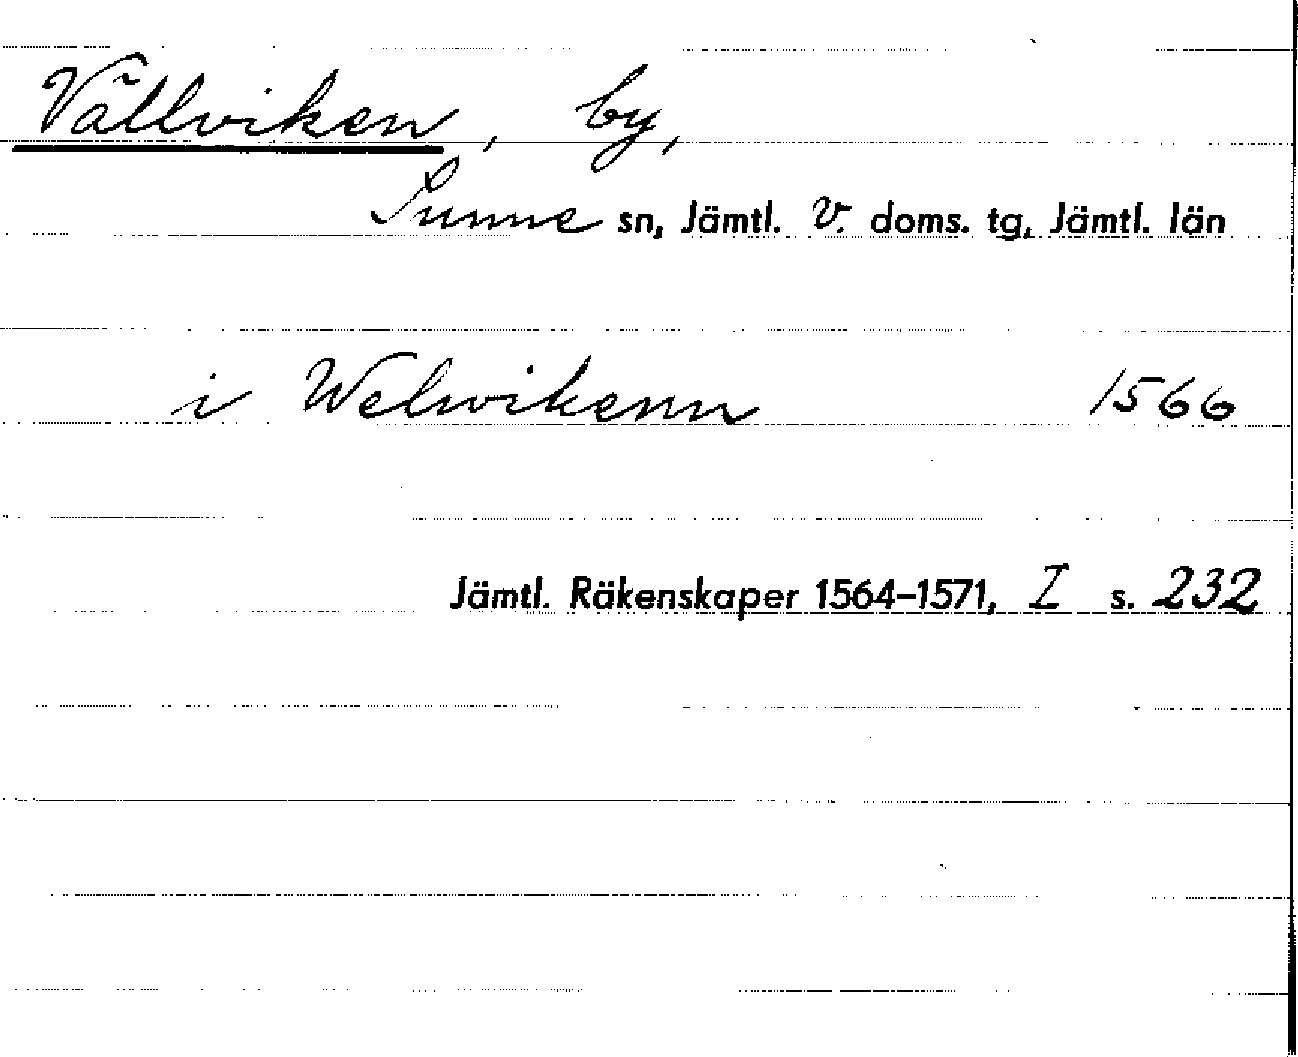 Vällviken, by,
Sunne sn, Jämtl. V. doms. tg, Jämtl. län
i Welwikenn 1566
Jämtl. Räkenskaper 1564–1571, I s. 232